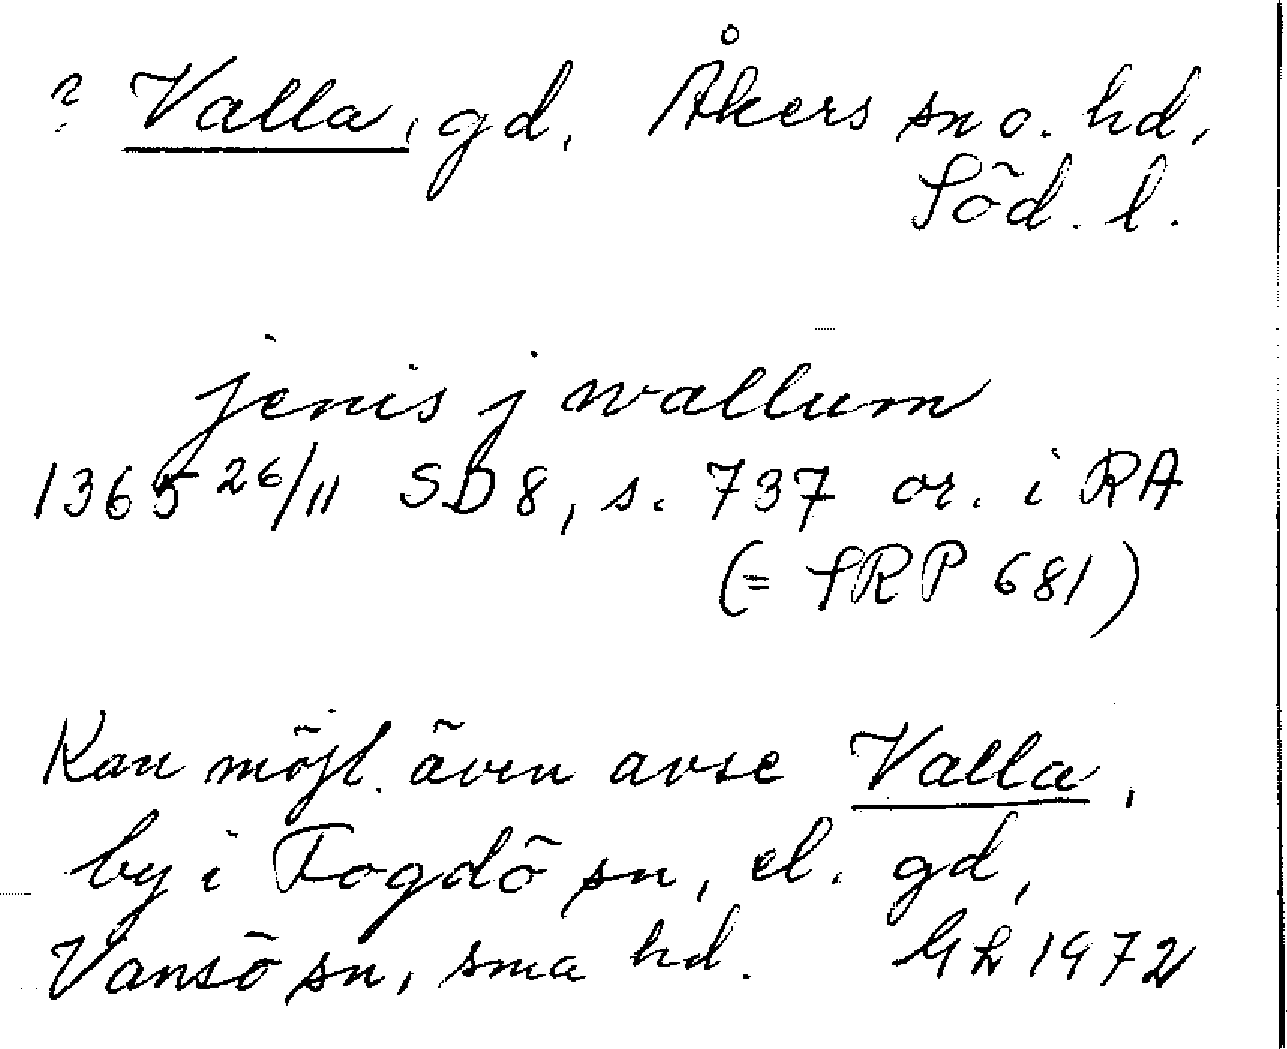 ? Valla, gd, Åkers sn o. hd,
Söd. l.
jenis j wallum
1365 26/11 SD 8, s. 737 or. i RA
(= SRP 681)
Kan möjl. även avse Valla,
by i Fogdö sn, el. gd,
Vansö sn, sma hd. 1972